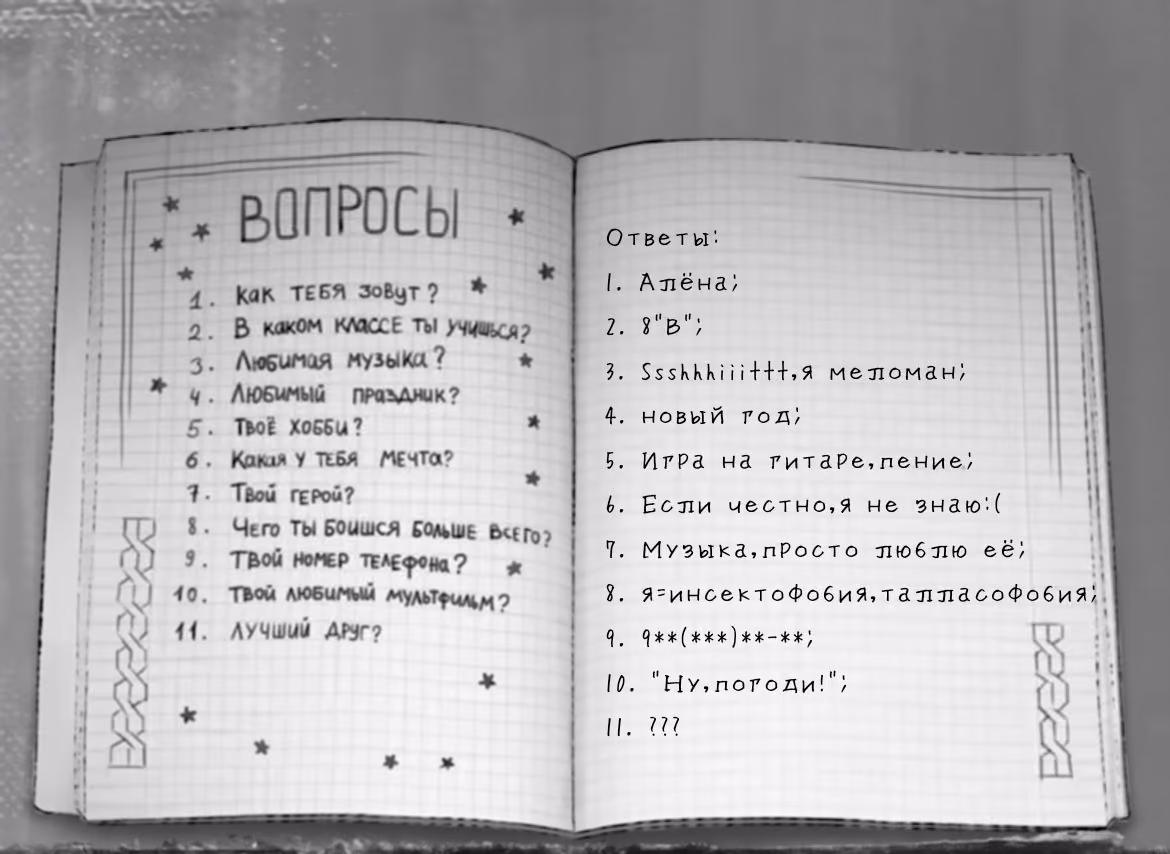 ВОПРОСЫ
1. Как тебя зовут?
2. В каком классе ты учишься?
3. Любимая музыка?
4. Любимый праздник?
5. Твоё хобби?
6. Какая у тебя мечта?
7. Твой герой?
8. Чего ты боишся больше всего?
9. Твой номер телефона?
10. Твой любимый мультфильм?
11. Лучший друг?
Ответы:
1. Алёна;
2. 8"В";
3. Ssshhhiiittt,я меломан;
4. новый год;
5. Игра на гитаре,пение;
6. Если честно,я не знаю:(
7. Музыка,просто люблю её;
8. я=инсектофобия,талласофобия;
9. 9**(***)**-**;
10. "Ну,погоди!";
11. ???